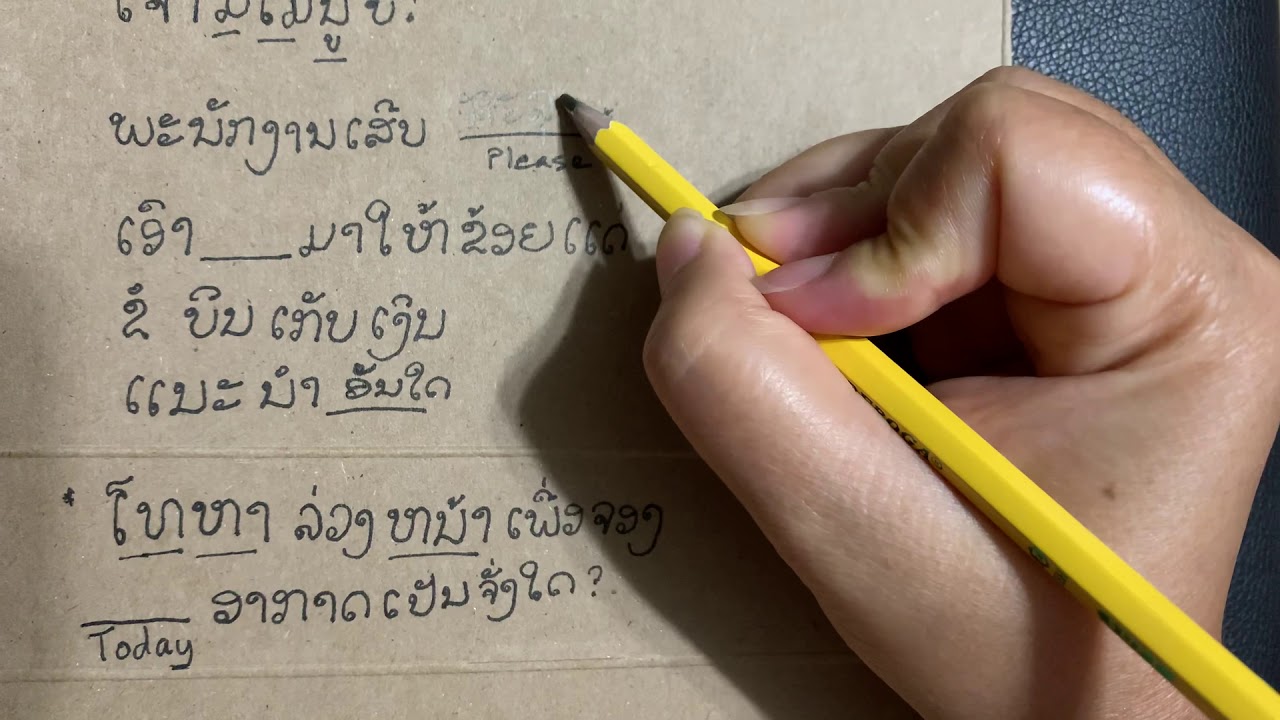 ເຈົ້າມີເມນູບໍ?
ພະນັກງານເສີບ
Please
ເອົາ____ມາໃຫ້ຂ້ອຍແດ່
ຂໍ ບິນ ເກັບ ເງິນ
ແນະ ນຳ ອັນໃດ
* ໂທຫາ ລ່ວງ ຫນ້າ ເພື່ອຈອງ
____ ອາກາດ ເປັນ ຈັ່ງໃດ?
Today